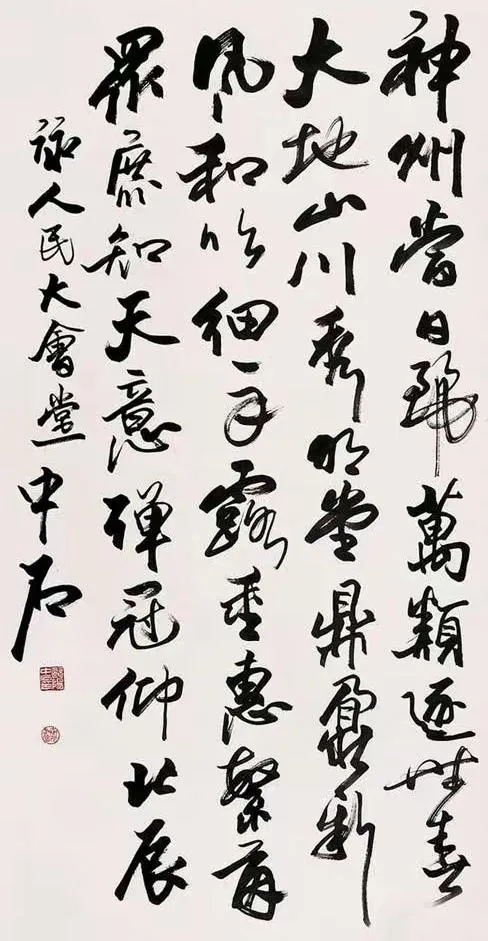 神州當日麗萬類逐時春
大地山川秀明堂鼎鼐新
風和吹細露重惠繁
眾庶知天意彈冠仰北辰
詠人民大會堂中石